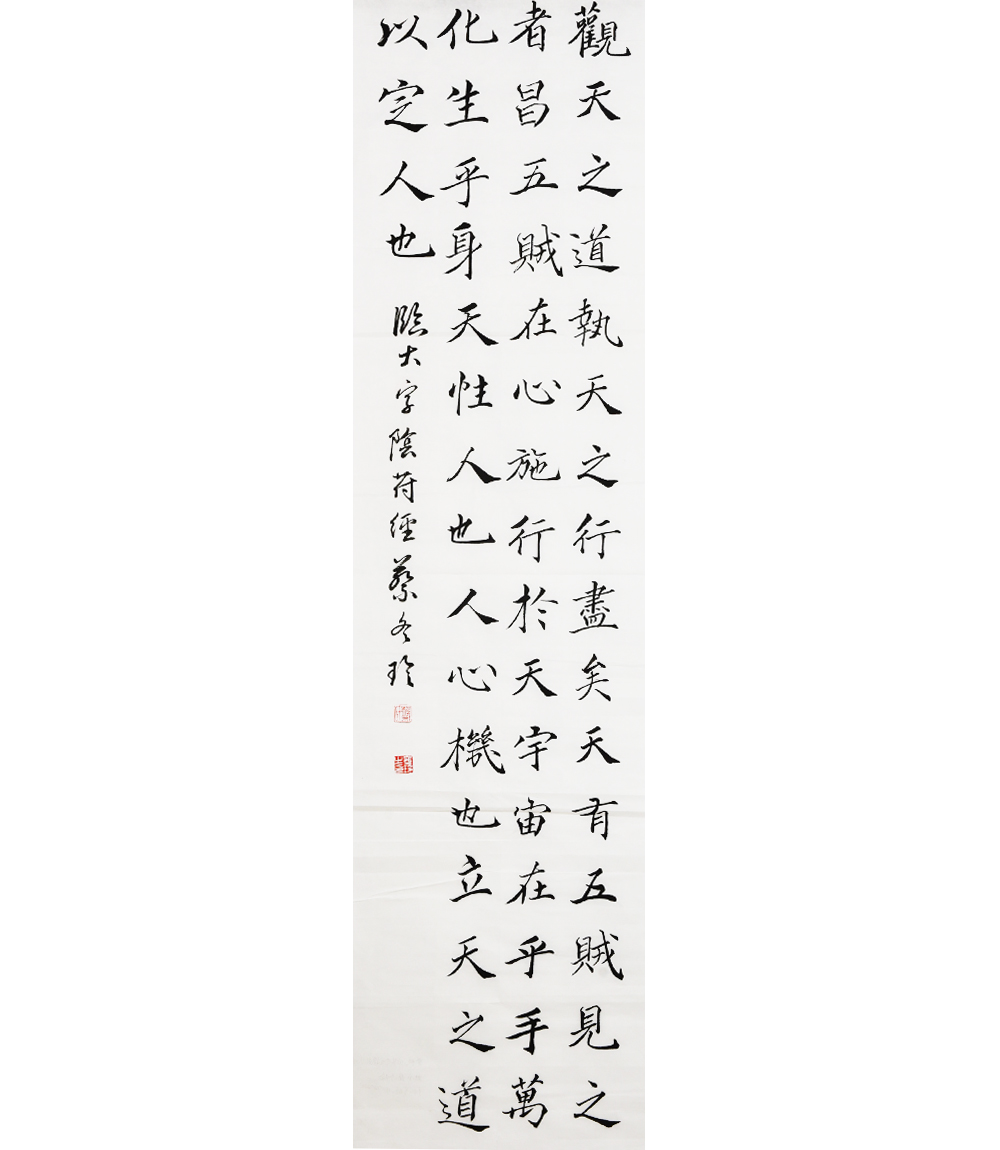 觀天之道執天之行盡矣天有五賊見之
者昌五賊在心施行於天宇宙在乎手萬
化生乎身天性人也人心機也立天之道
以定人也
臨大字陰符經蔡冬玲